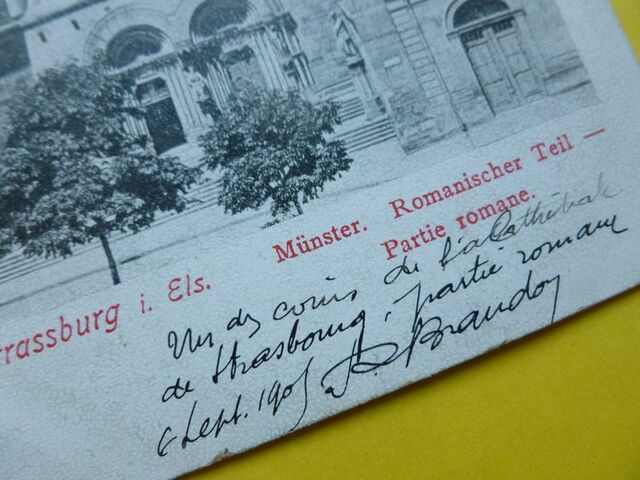 Strassburg i. Els.
Münster. Romanischer Teil —
Partie romane.
Un des coins de la Cathédrale
de Strasbourg, partie romane
6 Sept. 1905